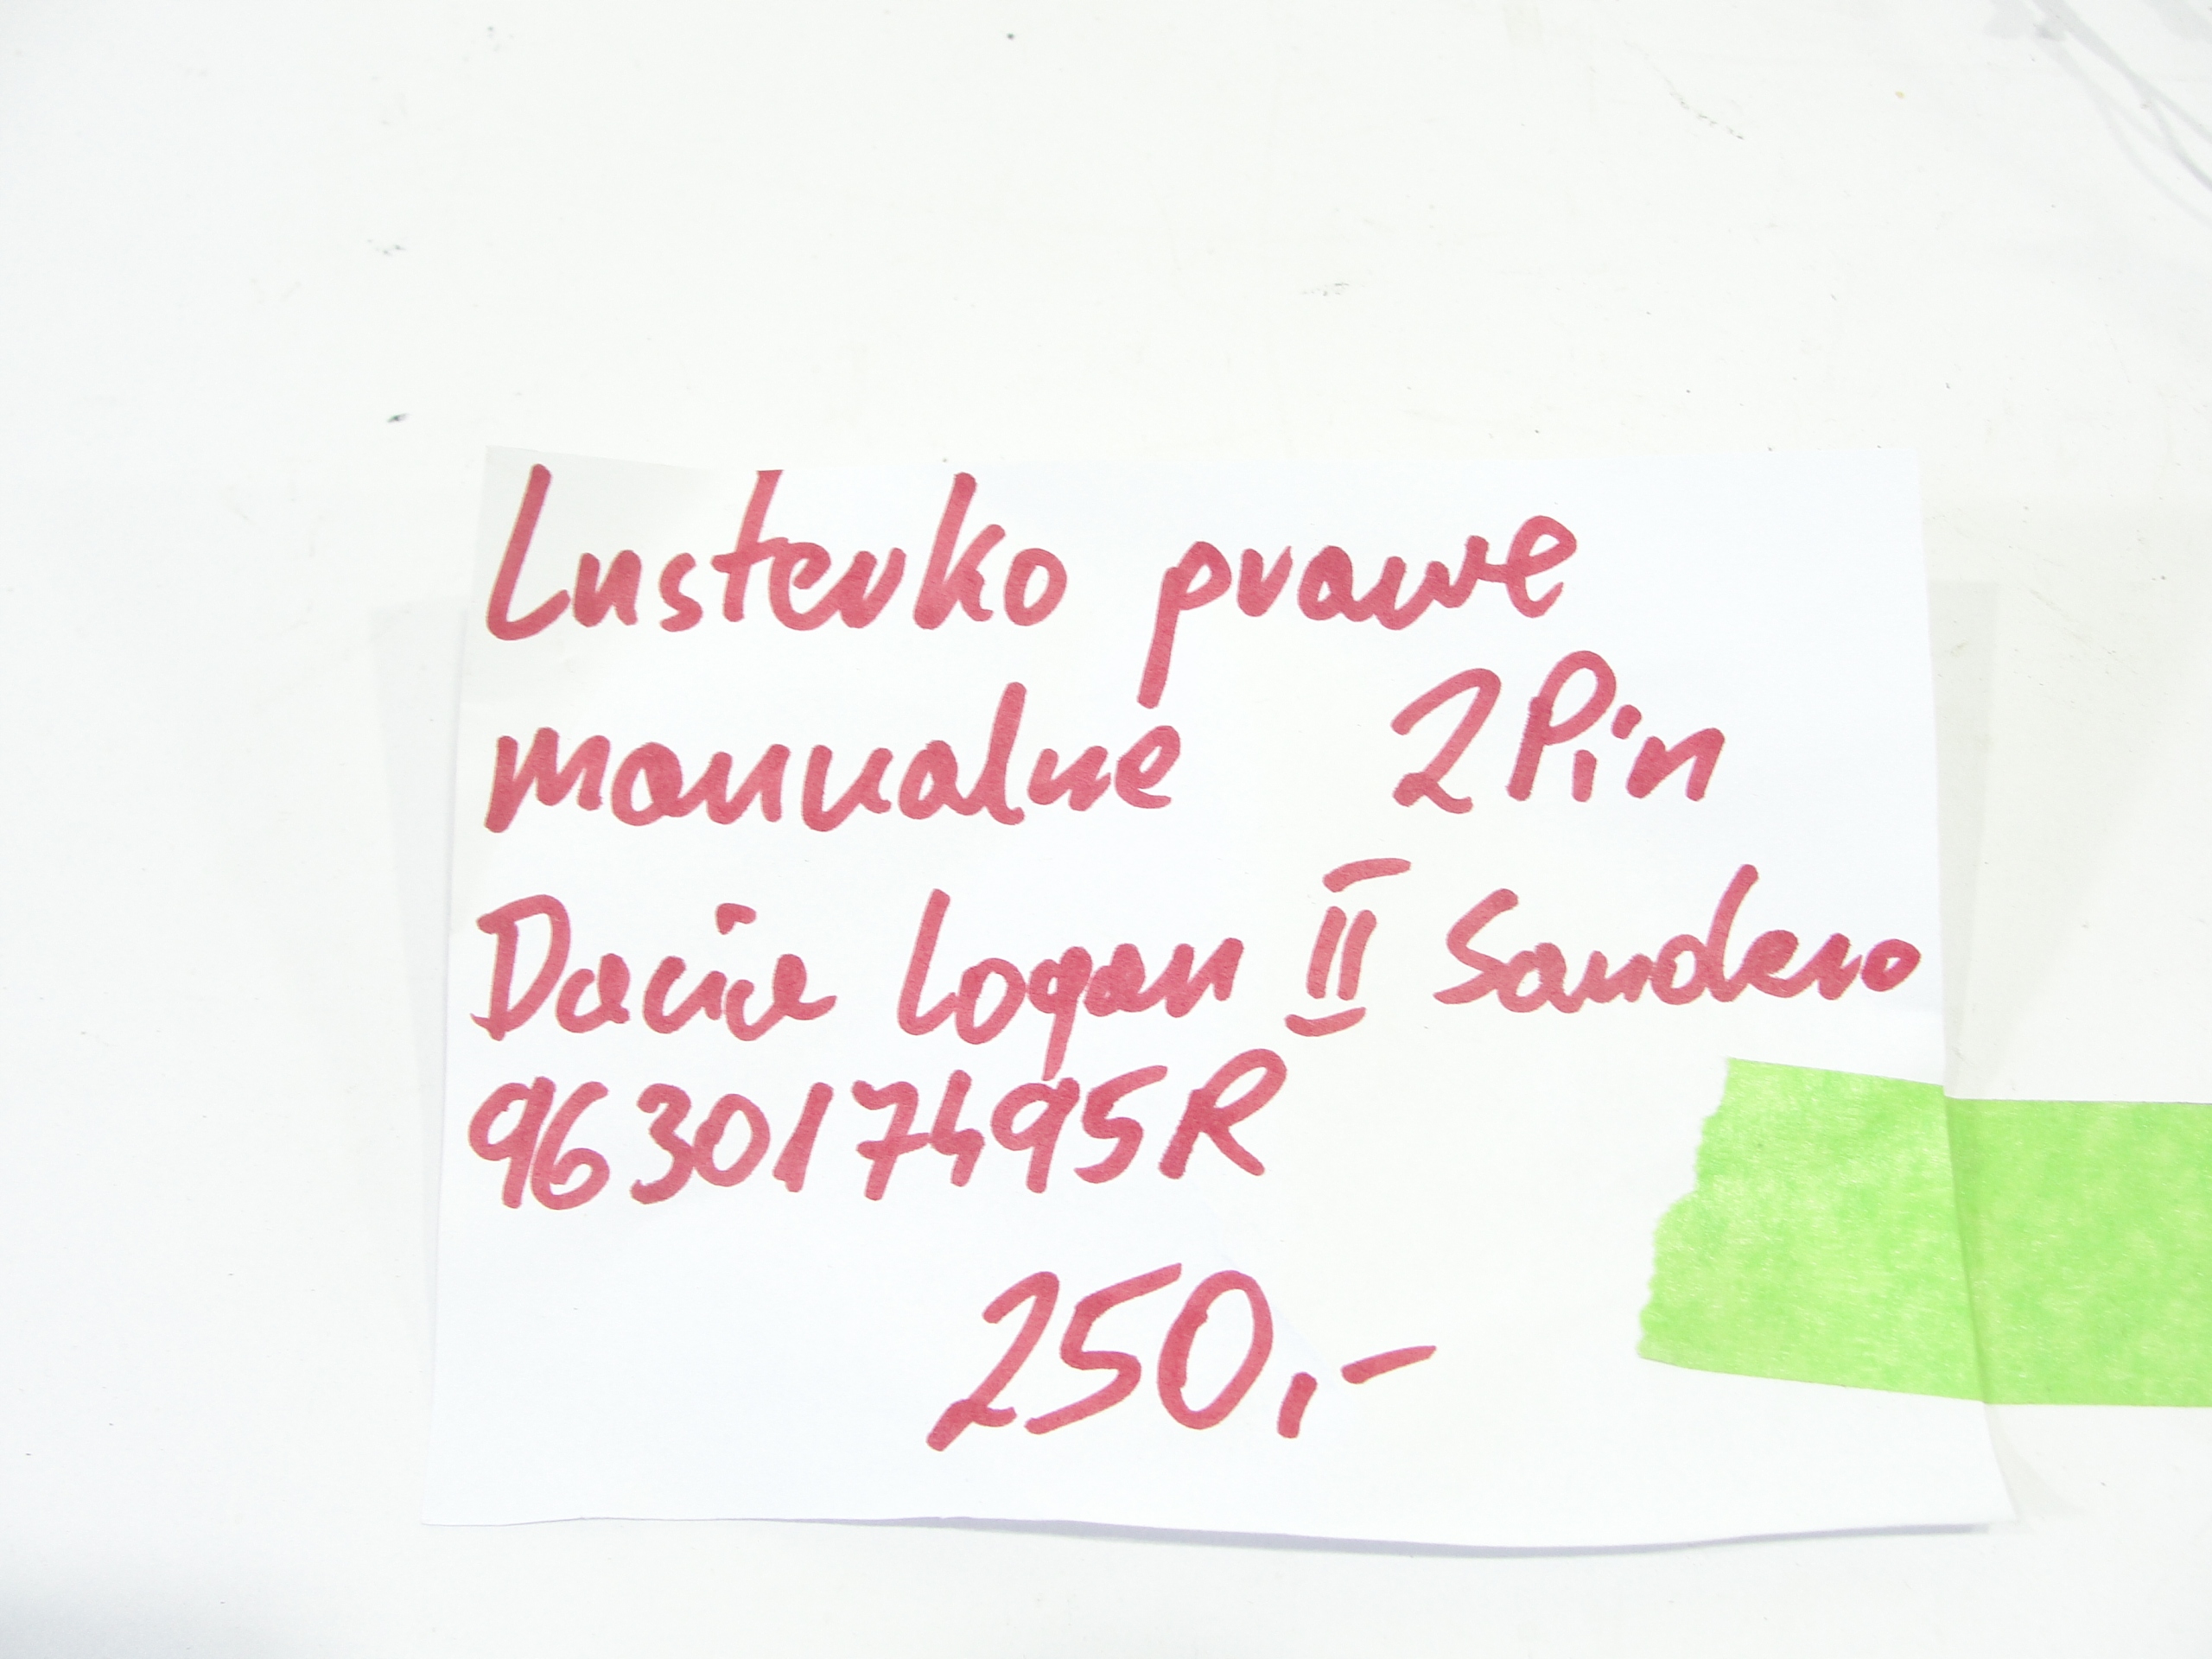 Lusterko prawe
manualne 2Pin
Dacia Logan II Sandero
963017495R
250,-